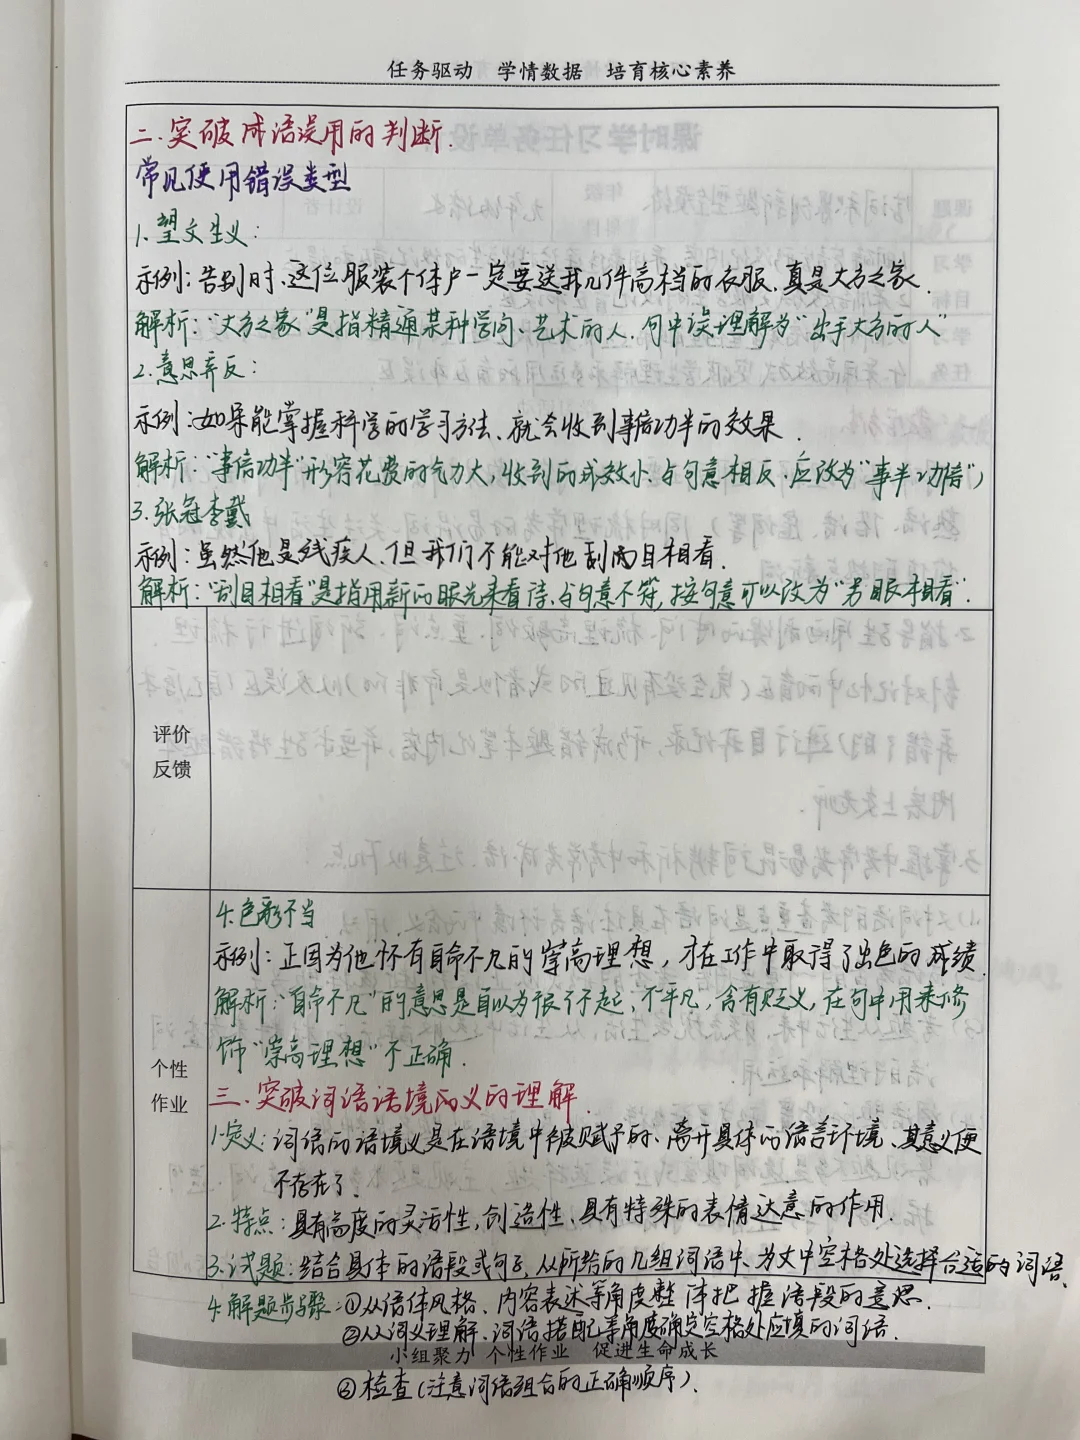 任务驱动 学情数据 培育核心素养
二.突破成语误用的判断.
常见使用错误类型
1.望文生义:
示例:告别时、这位服装个体户一定要送我几件高档的衣服,真是大方之家.
解析:“大方之家”是指精通某种学问、艺术的人.句中误理解为“出手大方的人”
2.意思弄反:
示例:如果能掌握科学的学习方法、就会收到事倍功半的效果.
解析:“事倍功半”形容花费的气力大,收到的成效小.与句意相反.应改为“事半功倍”)
3.张冠李戴
示例:虽然他是残疾人.但我们不能对他刮两目相看.
解析:“刮目相看”是指用新的眼光来看待.与句意不符,按句意可以改为“另眼相看”.
评价
反馈
4.色彩不当
示例:正因为他怀有自命不凡的崇高理想,才在工作中取得了出色的成绩.
解析:“自命不凡”的意思是自以为很了不起,不平凡,含有贬义,在句中用来修
饰“崇高理想”不正确.
个性
作业
三.突破词语语境的义的理解.
1.定义:词语的语境义是在语境中被赋予的、离开具体的语言环境、其意义便
不存在了.
2.特点:具有高度的灵活性,创造性、具有特殊的表情达意的作用.
3.试题:结合具体的语段或句子,从所给的几组词语中、为文中空格处选择合适的词语、
4.解题步骤:①从语体风格、内容表述等角度整体把握语段的意思.
②从词义理解、词语搭配等角度确定空格处应填的词语.
小组聚力 个性作业 促进生命成长
③检查(注意词语组合的正确顺序).